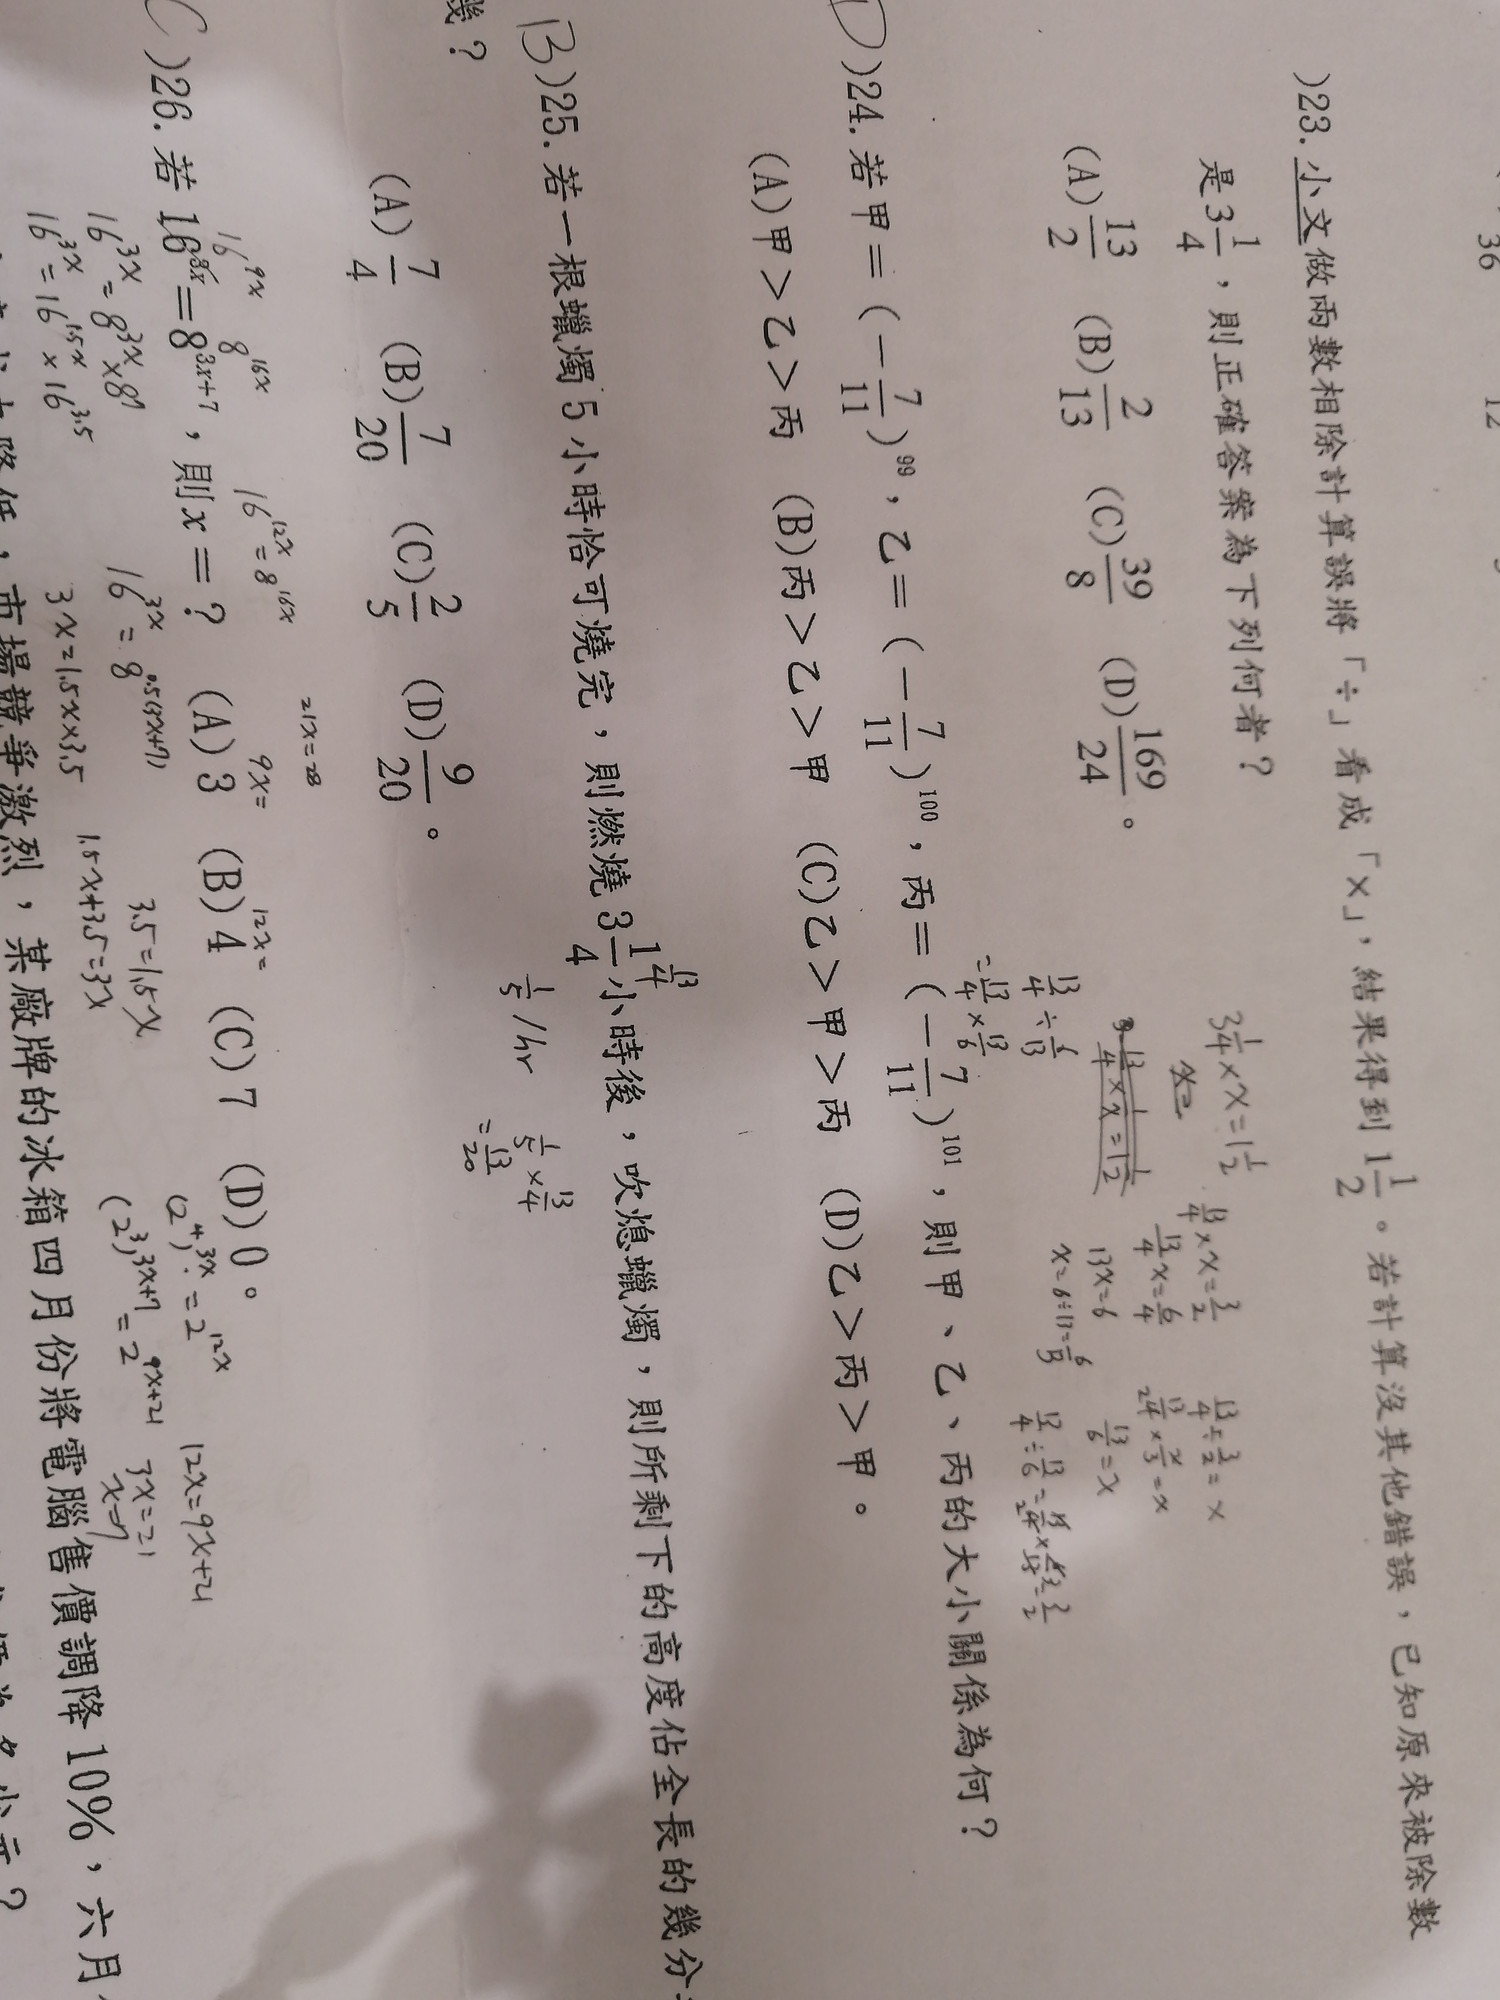 36 12
)23.小文做兩數相除計算誤將「÷」看成「×」，結果得到1 1/2。若計算沒其他錯誤，已知原來被除數
是3 1/4，則正確答案為下列何者？
(A)13/2 (B)2/13 (C)39/8 (D)169/24。
3 1/4 × x = 1 1/2
13/4 × x = 1 1/2
13/4 × x = 3/2
13/4 x = 6/4
13x = 6
x = 6÷13 = 6/13
13/4 ÷ 3/2 = x
13/6 = x
13/4 ÷ 6/13
= 13/4 × 13/6
D )24.若甲＝(－7/11)^99，乙＝(－7/11)^100，丙＝(－7/11)^101，則甲、乙、丙的大小關係為何？
(A)甲＞乙＞丙 (B)丙＞乙＞甲 (C)乙＞甲＞丙 (D)乙＞丙＞甲。
B )25.若一根蠟燭5小時恰可燒完，則燃燒3 1/4小時後，吹熄蠟燭，則所剩下的高度佔全長的幾分
幾？
13/4
1/5 /hr
1/5 × 13/4
= 13/20
(A)7/4 (B)7/20 (C)2/5 (D)9/20。
21x=28
16^9x 8^16x
16^12x = 8^16x
9x=
12x=
C )26.若16^3x＝8^3x+7，則x＝？ (A)3 (B)4 (C)7 (D)0。
16^3x = 8^3x × 8^7
16^3x = 16^1.5x × 16^3.5
16^3x = 8^0.5(3x+7)
3x=1.5x×3.5
3.5=1.5x
1.5x+3.5=3x
(2^4)^3x = 2^12x
(2^3)^3x+7 = 2^9x+21
12x=9x+21
3x=21
x=7
降低，市場競爭激烈，某廠牌的冰箱四月份將電腦售價調降10%，六月